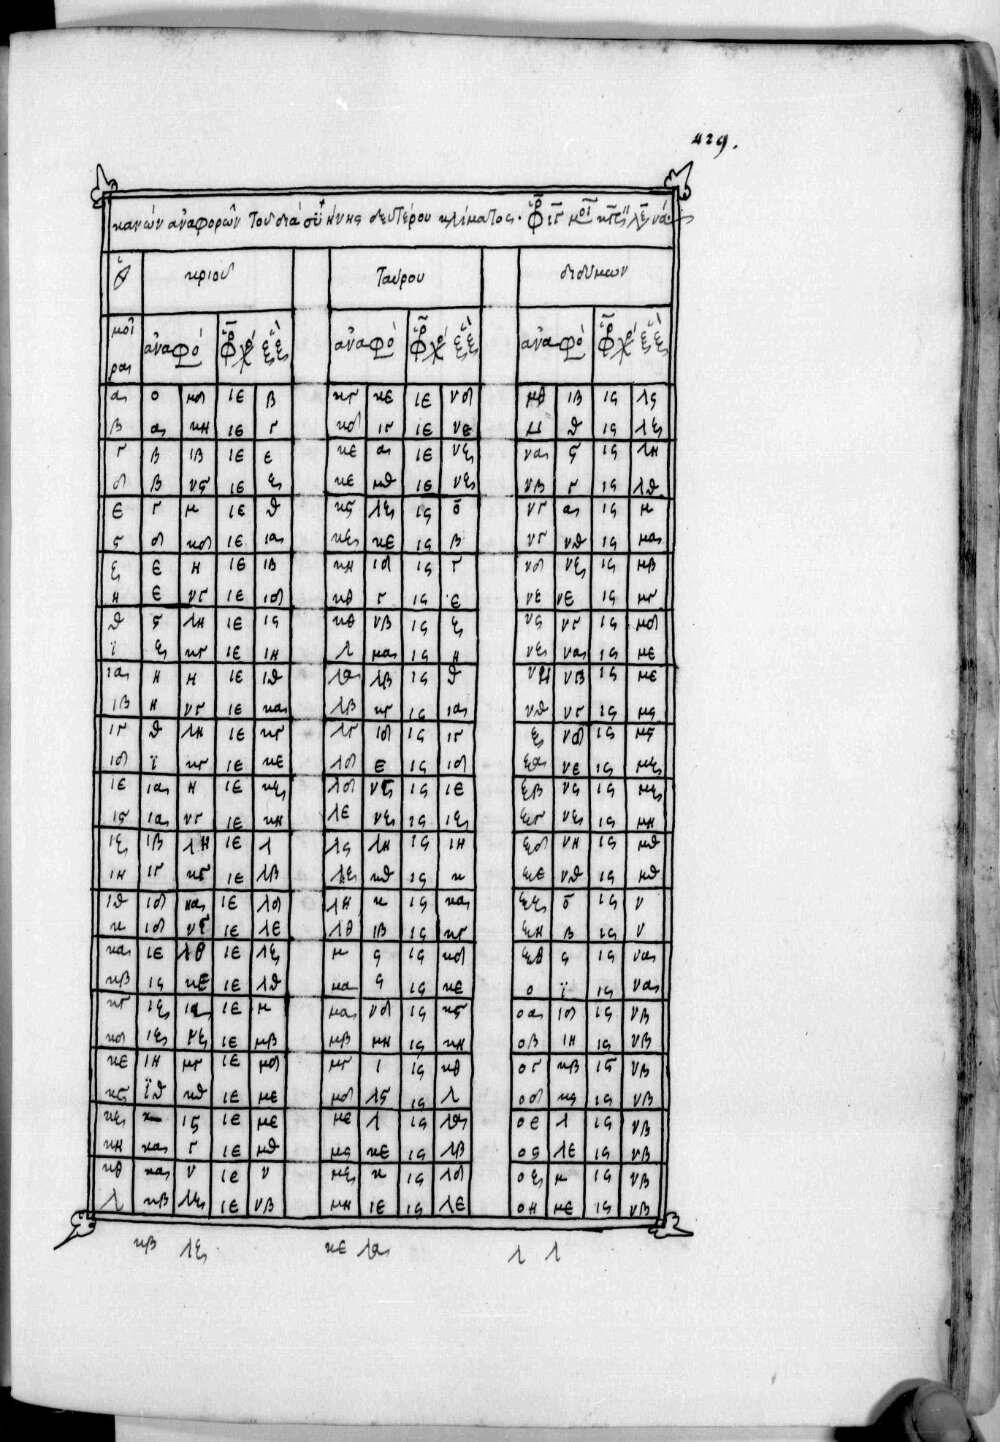 429.
κανών ἀναφορῶν τοῦ διὰ συήνης δευτέρου κλίματος.
κριοῦ ταύρου διδύμων
μοῖραι ἀναφό ἀναφό ἀναφό
α ο μδ ιε β κγ κε ιε νδ μθ ιβ ις λς
β α κη ιε γ κδ ιγ ιε νε ν θ ις λζ
γ β ιβ ιε ε κε α ιε νζ να ς ις λη
δ β νς ιε ζ κε μθ ιε νζ νβ γ ις λθ
ε γ μ ιε θ κς λζ ις ο νγ α ις μ
ς δ κδ ιε ια κζ κε ις β νγ νθ ις μα
ζ ε η ιε ιβ κη ιδ ις γ νδ νζ ις μβ
η ε νγ ιε ιδ κθ γ ις ε νε νε ις μγ
θ ς λη ιε ις κθ νβ ις ζ νς νγ ις μδ
ϊ ζ κγ ιε ιη λ μα ις η νζ να ις με
ια η η ιε ιθ λα λβ ις θ νη νβ ις με
ιβ η νγ ιε κα λβ κγ ις ια νθ νγ ις μς
ιγ θ λη ιε κγ λγ ιδ ις ιγ ξ νδ ις μς
ιδ ϊ κγ ιε κε λδ ε ις ιδ ξα νε ις μζ
ιε ια η ιε κζ λδ νς ις ιε ξβ νς ις μζ
ις ια νγ ιε κη λε νζ ις ιζ ξγ νζ ις μη
ιζ ιβ λη ιε λ λς λη ις ιη ξδ νη ις μθ
ιη ιγ κγ ιε λβ λζ κθ ις κ ξε νθ ις μθ
ιθ ιδ κα ιε λδ λη κ ις κα ξζ ο ις ν
κ ιδ νς ιε λε λθ ιβ ις κγ ξη β ις ν
κα ιε λθ ιε λζ μ ς ις κδ ξθ ς ις να
κβ ις κε ιε λθ μα ς ις κε ο ϊ ις να
κγ ιζ ια ιε μ μα νδ ις κς οα ιδ ις νβ
κδ ιζ νζ ιε μβ μβ μη ις κη οβ ιη ις νβ
κε ιη μγ ιε μδ μγ ι ις κθ ογ κβ ις νβ
κς ϊθ κθ ιε με μδ λς ις λ οδ κς ις νβ
κζ κ ις ιε με με λ ις λα οε λ ις νβ
κη κα γ ιε μθ μς κε ις λβ ος λε ις νβ
κθ κα ν ιε ν μζ κ ις λδ οζ μ ις νβ
λ κβ λζ ιε νβ μη ιε ις λε οη με ις νβ
κβ λζ κε λα λ λ